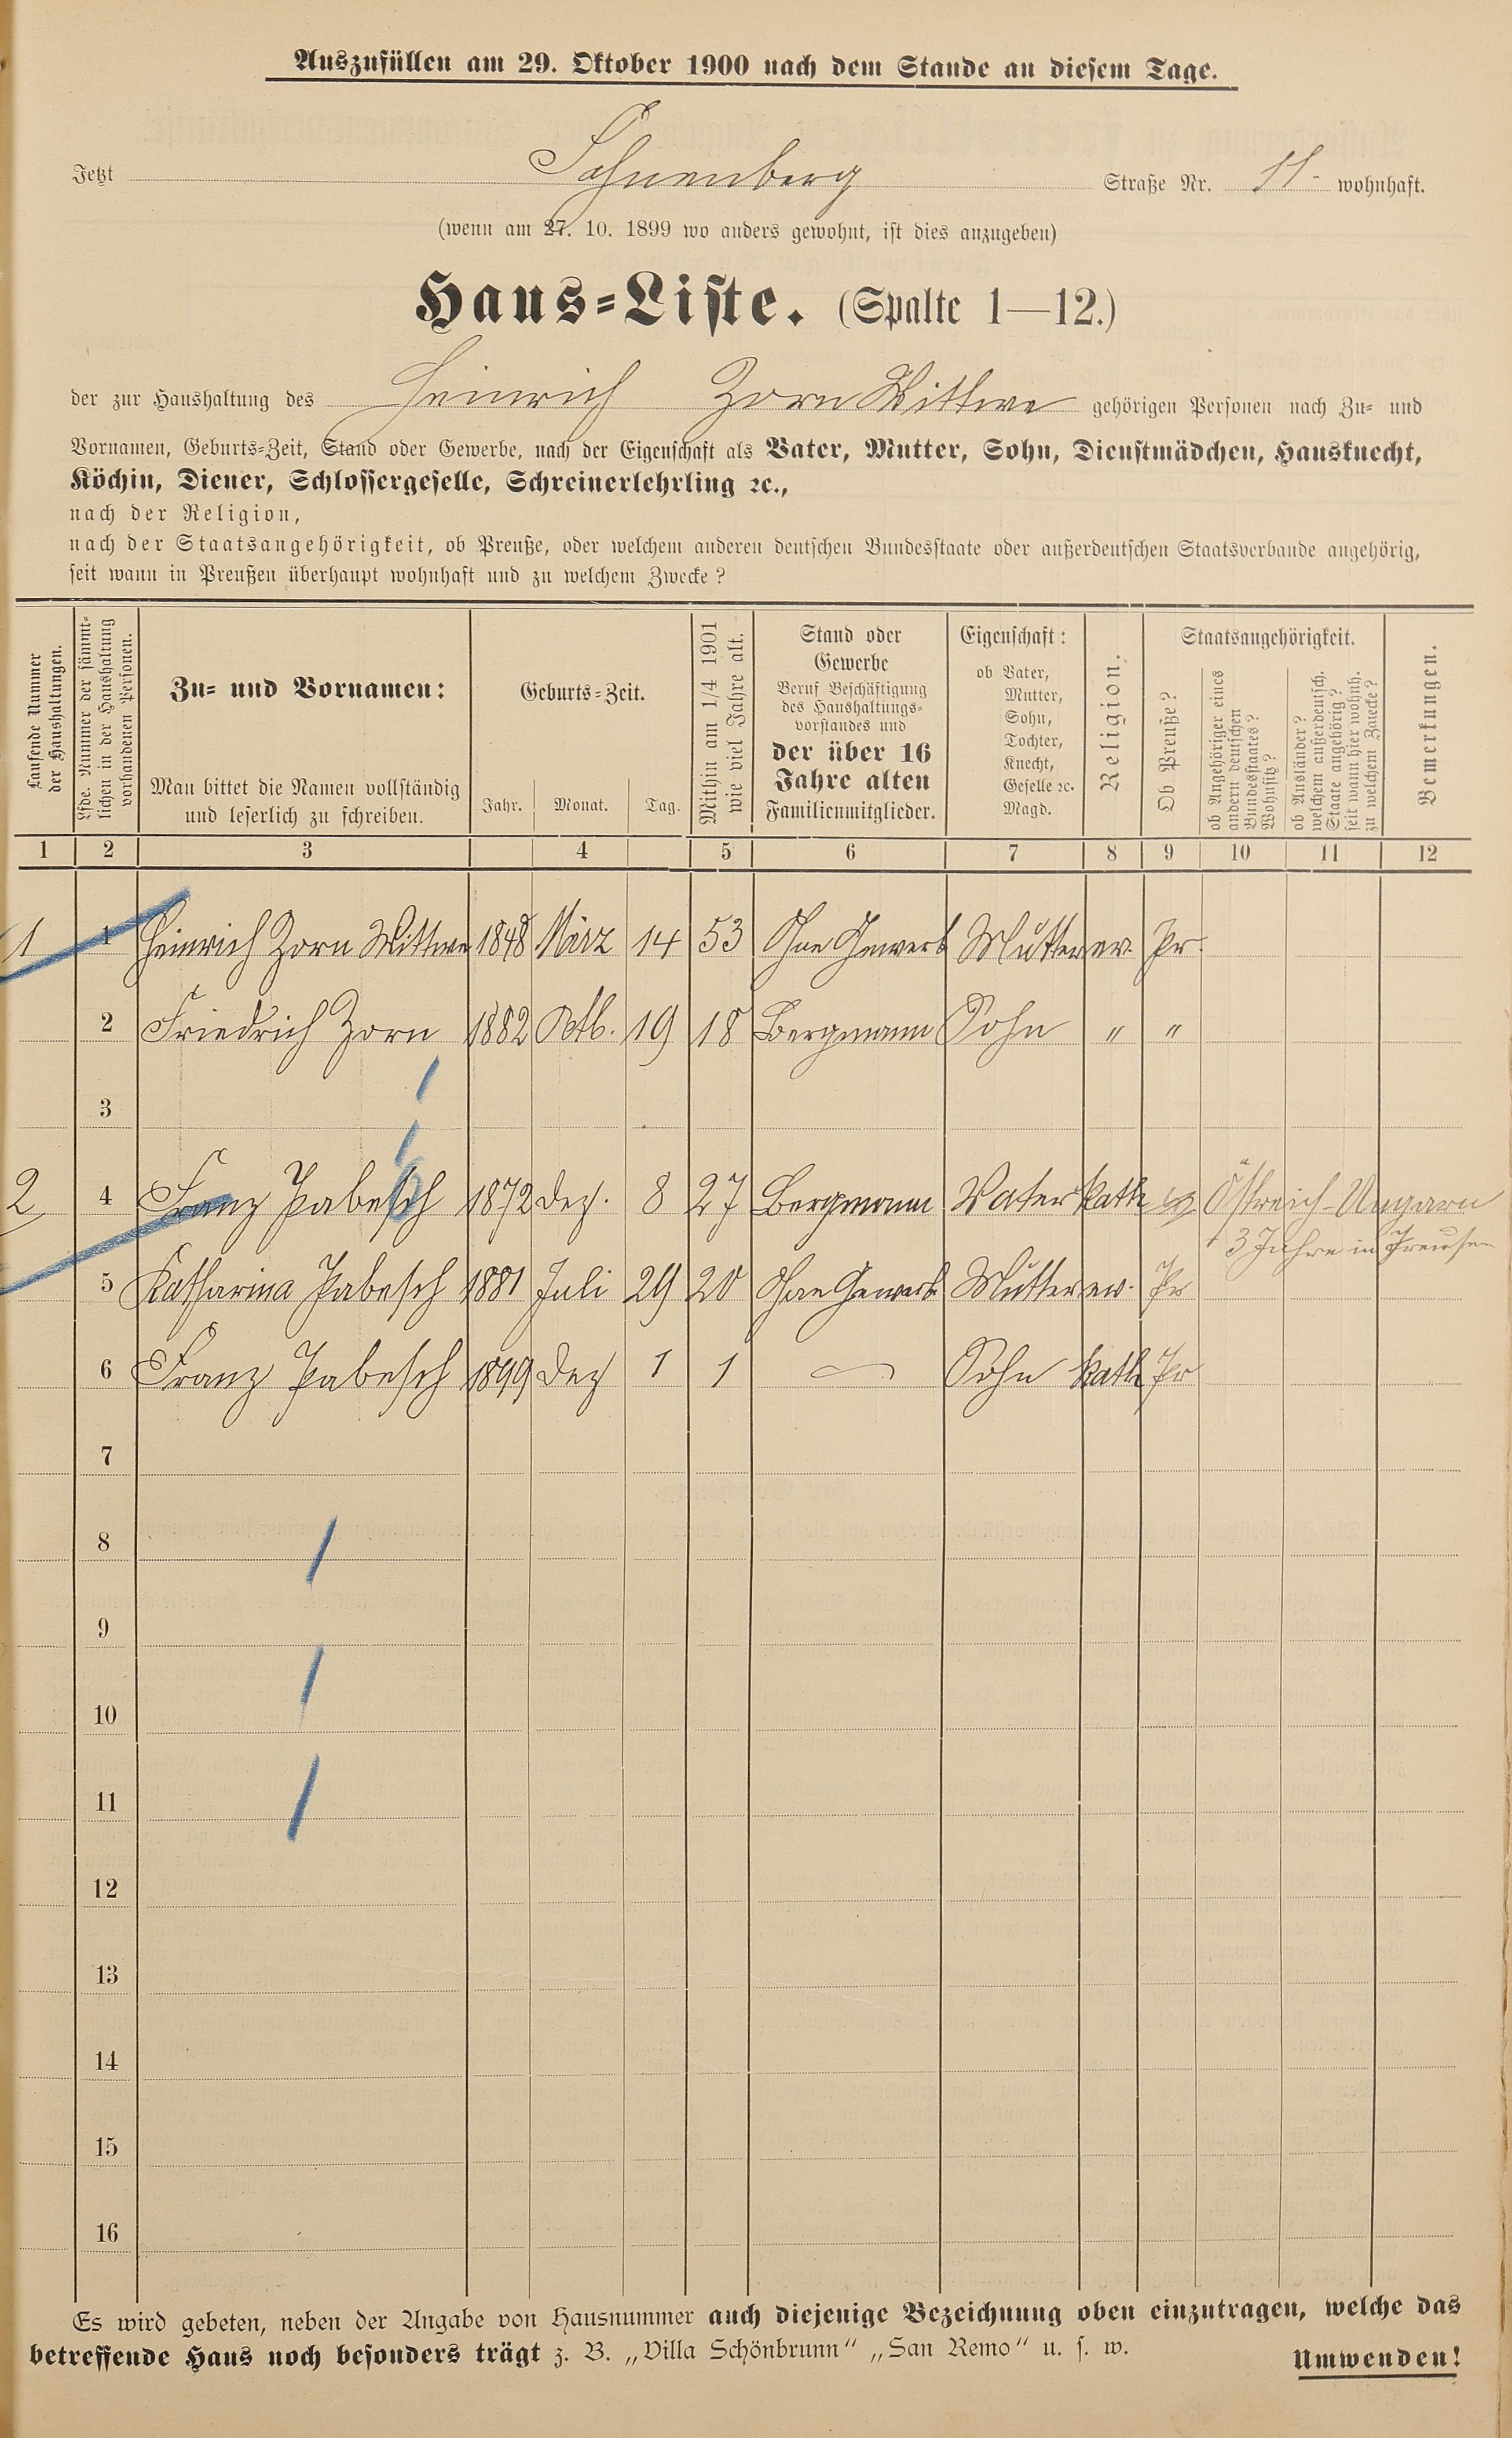 Auszufüllen am 29. Oktober 1900 nach dem Stande an diesem Tage.
Jetzt Schnenberg Straße Nr. 11. wohnhaft.
(wenn am 27. 10. 1899 wo anders gewohnt, ist dies anzugeben)
Haus-Liste. (Spalte 1—12.)
der zur Haushaltung des Heinrich Zorn Wittwe gehörigen Personen nach Zu- und
Vornamen, Geburts-Zeit, Stand oder Gewerbe, nach der Eigenschaft als Vater, Mutter, Sohn, Dienstmädchen, Hausknecht,
Köchin, Diener, Schlossergeselle, Schreinerlehrling ꝛc.,
nach der Religion,
nach der Staatsangehörigkeit, ob Preuße, oder welchem anderen deutschen Bundesstaate oder außerdeutschen Staatsverbande angehörig,
seit wann in Preußen überhaupt wohnhaft und zu welchem Zwecke?
Laufende Nummer
der Haushaltungen.
Lfde. Nummer der sämmt-
lichen in der Haushaltung
vorhandenen Personen.
Zu- und Vornamen:
Man bittet die Namen vollständig
und leserlich zu schreiben.
Geburts-Zeit.
Jahr. Monat. Tag.
Mithin am 1/4 1901
wie viel Jahre alt.
Stand oder
Gewerbe
Beruf Beschäftigung
des Haushaltungs-
vorstandes und
der über 16
Jahre alten
Familienmitglieder.
Eigenschaft:
ob Vater,
Mutter,
Sohn,
Tochter,
Knecht,
Geselle ꝛc.
Magd.
Religion.
Staatsangehörigkeit.
Ob Preuße?
ob Angehöriger eines
andern deutschen
Bundesstaates?
Wohnsitz?
ob Ausländer?
welchem außerdeutsch.
Staate angehörig?
seit wann hier wohnh.
zu welchem Zwecke?
Bemerkungen.
1 2 3 4 5 6 7 8 9 10 11 12
1 1 Heinrich Zorn Wittwe 1848 März 14 53 Ohne Gewerb Mutter ev. Pr.
2 Friedrich Zorn 1882 Oktb. 19 18 Bergmann Sohn " "
3
2 4 Franz Pabesch 1872 Dez. 8 27 Bergmann Vater kath Östreich-Ungarn
3 Jahre in Preusen
5 Katharina Pabesch 1881 Juli 29 20 Ohne Gewerb Mutter ev. Pr
6 Franz Pabesch 1899 Dez 1 1 — Sohn kath Pr
7
8
9
10
11
12
13
14
15
16
Es wird gebeten, neben der Angabe von Hausnummer auch diejenige Bezeichnung oben einzutragen, welche das
betreffende Haus noch besonders trägt z. B. „Villa Schönbrunn“ „San Remo“ u. s. w.
Umwenden!